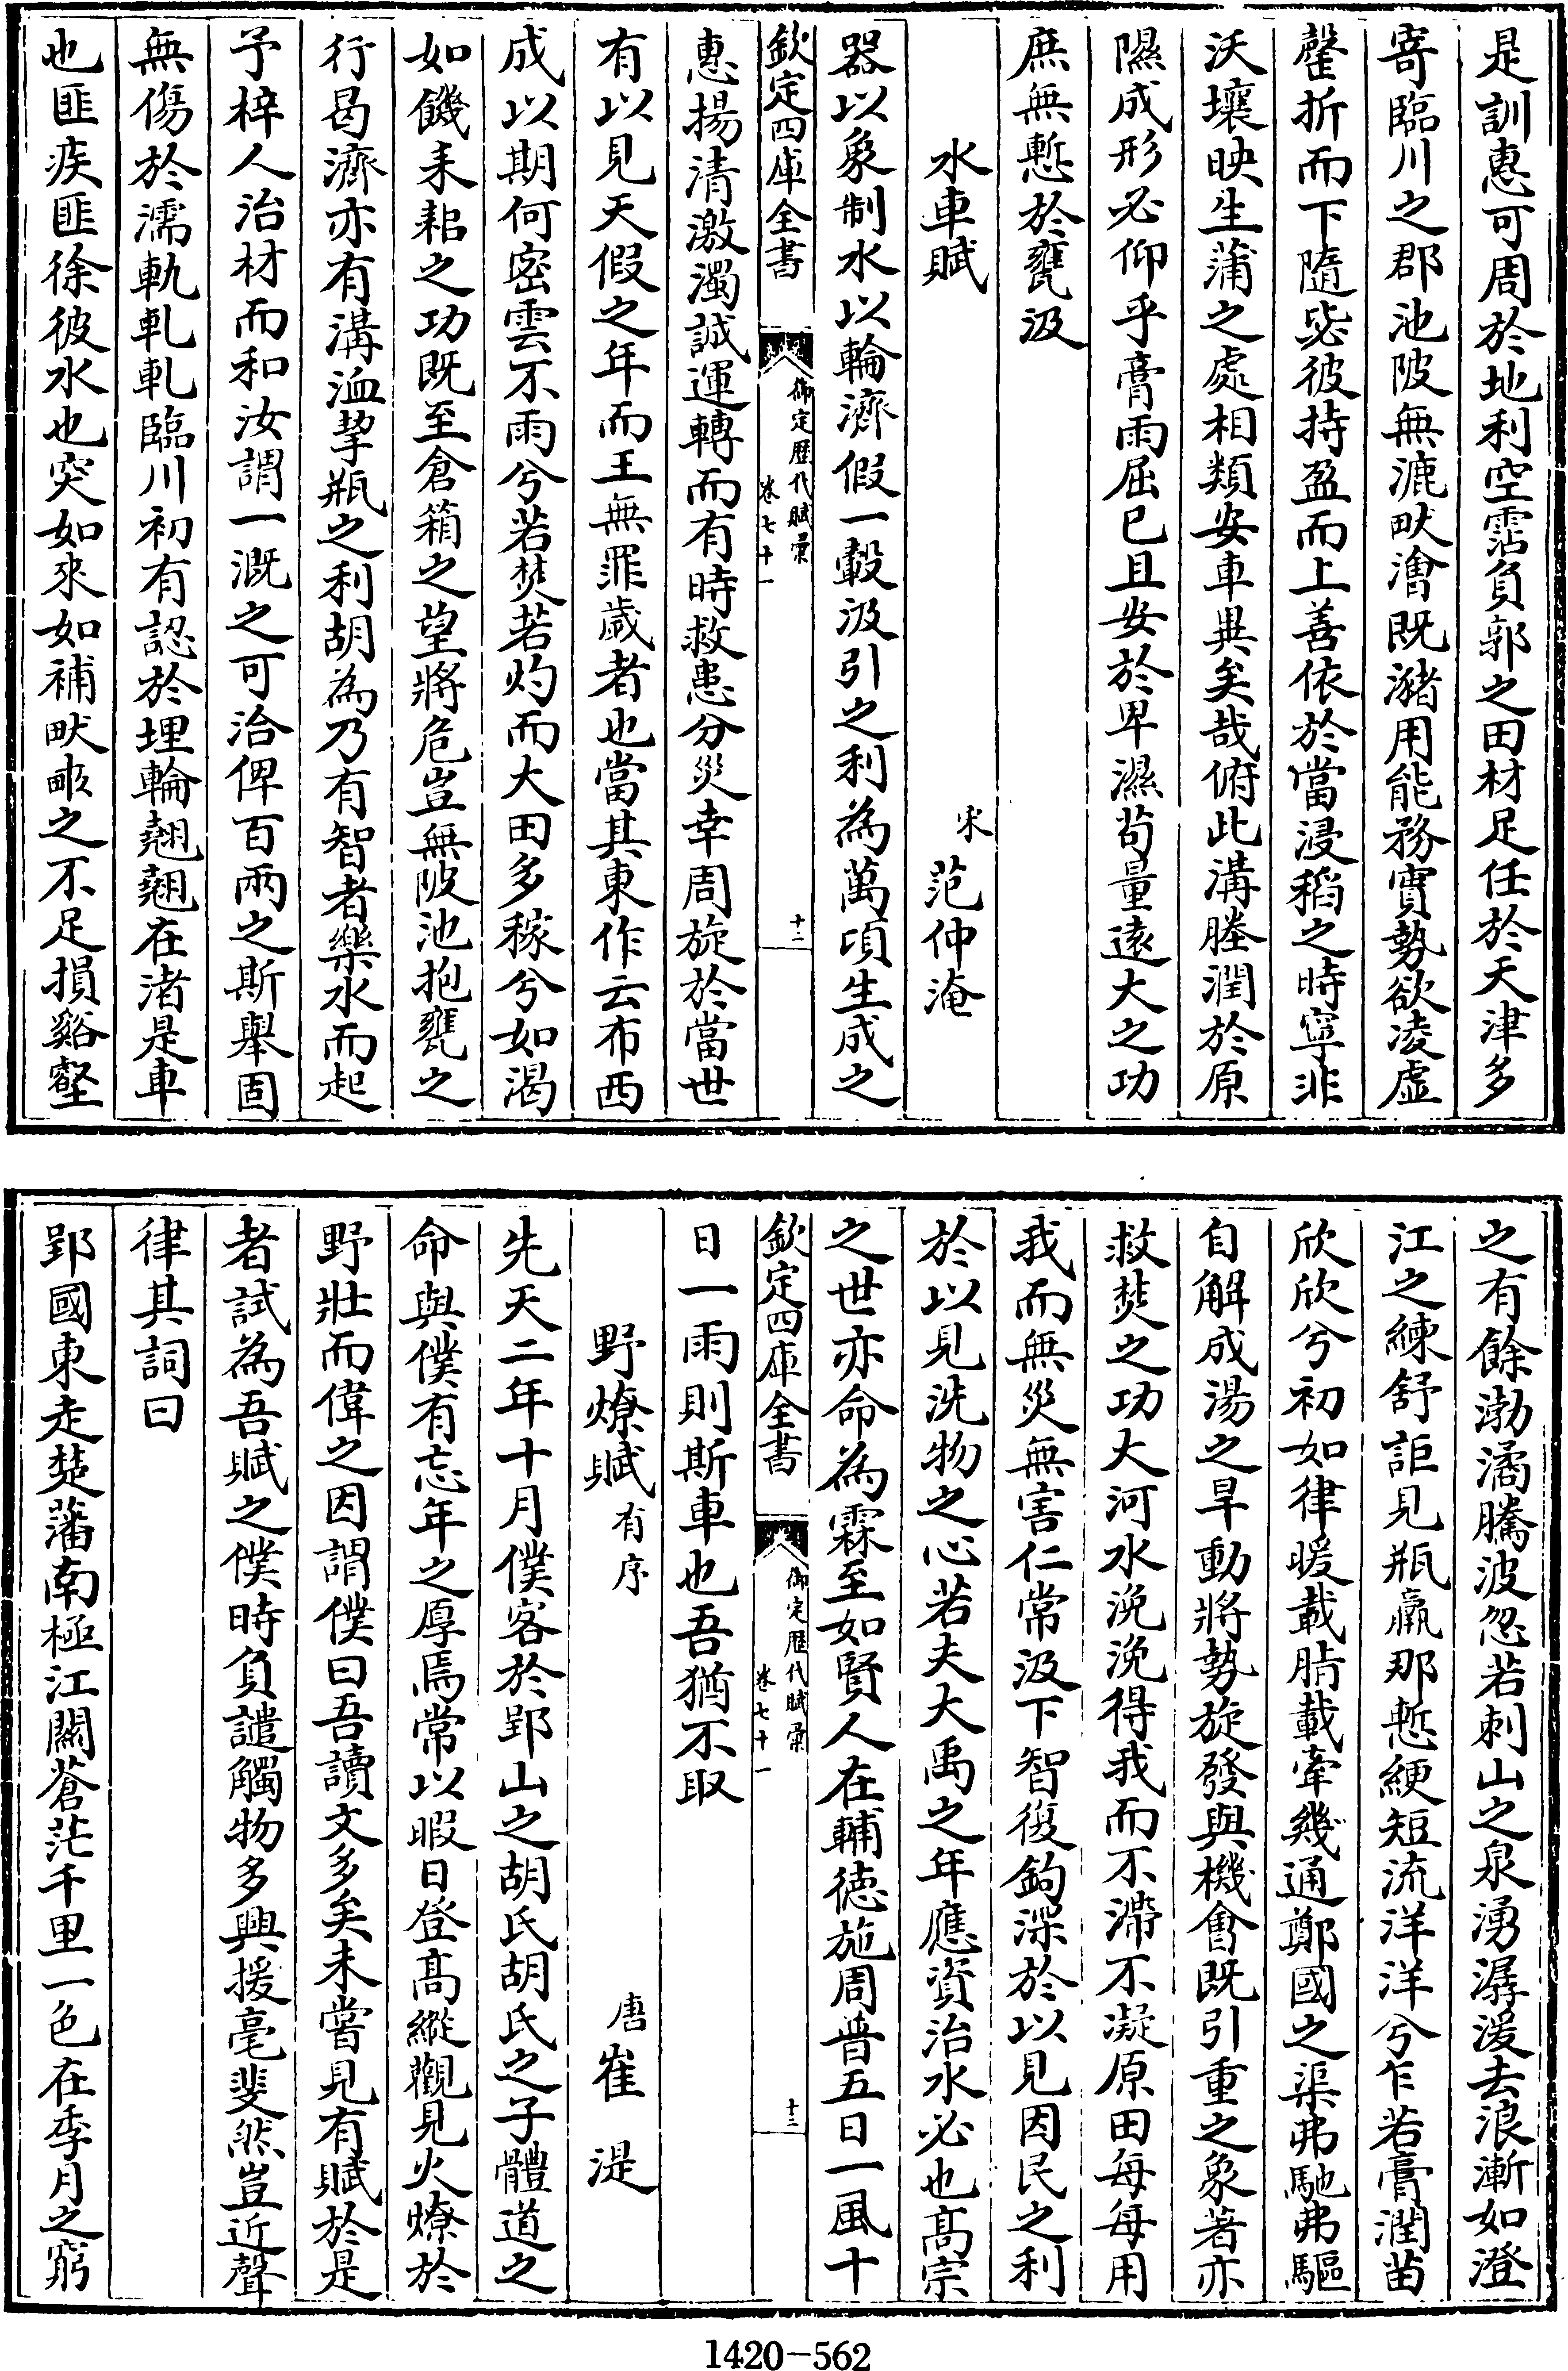 是訓惠可周於地利空霑負郭之田材足任於天津多
寄臨川之郡池陂無漉畎澮既瀦用能務實勢欲凌虚
罄折而下隨毖彼持盈而上善依於當浸稻之時寧非
沃壤映生蒲之處相類安車異矣哉俯此溝塍潤於原
隰成形必仰乎膏雨屈已且安於卑濕苟量逺大之功
庶無慙於甕汲
水車賦
宋 范仲淹
器以象制水以輪濟假一轂汲引之利為萬頃生成之
欽定四庫全書
御定歴代賦彚
卷七十一
十二
惠揚清激濁誠運轉而有時救患分災幸周旋於當世
有以見天假之年而王無罪歲者也當其東作云布西
成以期何密雲不雨兮若焚若灼而大田多稼兮如渴
如饑耒耜之功既至倉箱之望將危豈無陂池抱甕之
行曷濟亦有溝洫挈瓶之利胡為乃有智者樂水而起
予梓人治材而和汝謂一溉之可洽俾百兩之斯舉固
無傷於濡軌軋軋臨川初有認於埋輪翹翹在渚是車
也匪疾匪徐彼水也突如來如補畎畝之不足損谿壑
之有餘渤潏騰波忽若刺山之泉湧潺湲去浪漸如澄
江之練舒詎見瓶羸那慙綆短流洋洋兮乍若膏潤苗
欣欣兮初如律暖載脂載牽幾通鄭國之渠弗馳弗驅
自解成湯之旱動將勢旋發與機會既引重之象著亦
救焚之功大河水浼浼得我而不滯不凝原田每每用
我而無災無害仁常汲下智復鉤深於以見因民之利
於以見洗物之心若夫大禹之年應資治水必也髙宗
之世亦命為霖至如賢人在輔徳施周普五日一風十
欽定四庫全書
御定歴代賦彚
卷七十一
十三
日一雨則斯車也吾猶不取
野燎賦 有序
唐 崔湜
先天二年十月僕客於郢山之胡氏胡氏之子體道之
命與僕有忘年之厚焉常以暇日登髙縱觀見火燎於
野壯而偉之因謂僕曰吾讀文多矣未嘗見有賦於是
者試為吾賦之僕時負譴觸物多興援毫斐然豈近聲
律其詞曰
郢國東走楚藩南極江闗蒼茫千里一色在季月之窮
1420-562